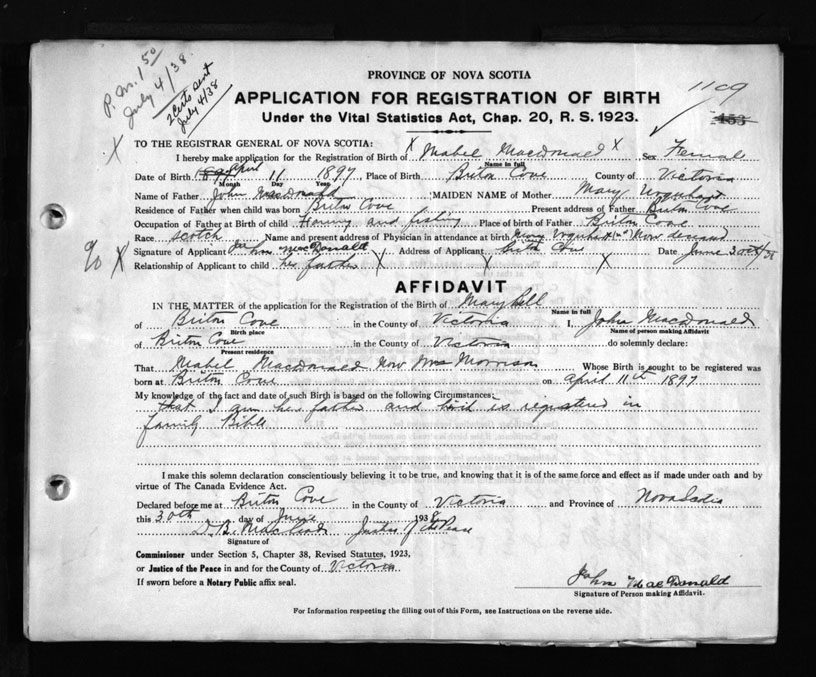 P.M. 1.50
July 4/38.
2 Certs sent
July 4/38
PROVINCE OF NOVA SCOTIA
1109
APPLICATION FOR REGISTRATION OF BIRTH
Under the Vital Statistics Act, Chap. 20, R. S. 1923.
453
X TO THE REGISTRAR GENERAL OF NOVA SCOTIA:
I hereby make application for the Registration of Birth of X Mabel Macdonald X Sex Female
Name in full
Date of Birth 1897 April 11 1897 Place of Birth Briton Cove County of Victoria
Month Day Year
Name of Father John Macdonald MAIDEN NAME of Mother Mary Urquhart
Residence of Father when child was born Briton Cove Present address of Father Briton Cove
Occupation of Father at Birth of child Farming and fishing Place of birth of Father Briton Cove
Race Scotch Name and present address of Physician in attendance at birth Mary Urquhart Now deceased
90 X Signature of Applicant John MacDonald X Address of Applicant Briton Cove Date June 30th/38
Relationship of Applicant to child her father X X
AFFIDAVIT
IN THE MATTER of the application for the Registration of the Birth of Mary Bell
Name in full
of Briton Cove in the County of Victoria I, John Macdonald
Birth place Name of person making Affidavit
of Briton Cove in the County of Victoria do solemnly declare:
Present residence
That Mabel Macdonald Now Mrs Morrison Whose Birth is sought to be registered was
born at Briton Cove on April 11th 1897
My knowledge of the fact and date of such Birth is based on the following Circumstances:
that I am her father and is registered in
family Bible
I make this solemn declaration conscientiously believing it to be true, and knowing that it is of the same force and effect as if made under oath and by
virtue of The Canada Evidence Act.
Declared before me at Briton Cove in the County of Victoria and Province of Nova Scotia
this 30th day of June 1938
D. B. MacLeod Justice of the Peace
Signature of
Commissioner under Section 5, Chapter 38, Revised Statutes, 1923,
or Justice of the Peace in and for the County of Victoria
If sworn before a Notary Public affix seal.
John MacDonald
Signature of Person making Affidavit.
For Information respecting the filling out of this Form, see Instructions on the reverse side.